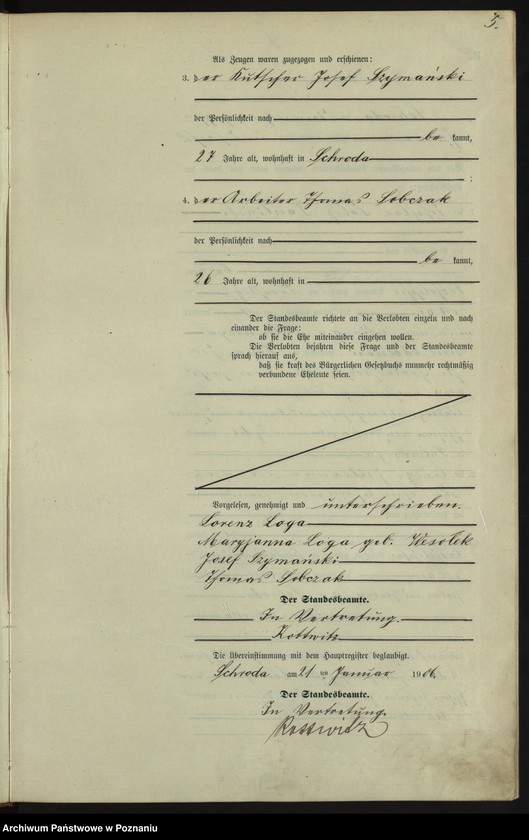 5.
Als Zeugen waren zugezogen und erschienen:
3. Der Kutscher Josef Szymański
der Persönlichkeit nach
be kannt,
27 Jahre alt, wohnhaft in Schroda
;
4. Der Arbeiter Thomas Sobczak
der Persönlichkeit nach
be kannt,
26 Jahre alt, wohnhaft in
Der Standesbeamte richtete an die Verlobten einzeln und nach
einander die Frage:
ob sie die Ehe miteinander eingehen wollen.
Die Verlobten bejahten diese Frage und der Standesbeamte
sprach hierauf aus,
daß sie kraft des Bürgerlichen Gesetzbuchs nunmehr rechtmäßig
verbundene Eheleute seien.
Vorgelesen, genehmigt und unterschrieben.
Lorenz Loga
Maryjanna Loga geb. Wesołek
Josef Szymański
Thomas Sobczak
Der Standesbeamte.
In Vertretung.
Kottwitz
Die Übereinstimmung mit dem Hauptregister beglaubigt.
Schroda am 21 ten Januar 1906.
Der Standesbeamte.
In Vertretung.
Kottwitz
Archiwum Państwowe w Poznaniu